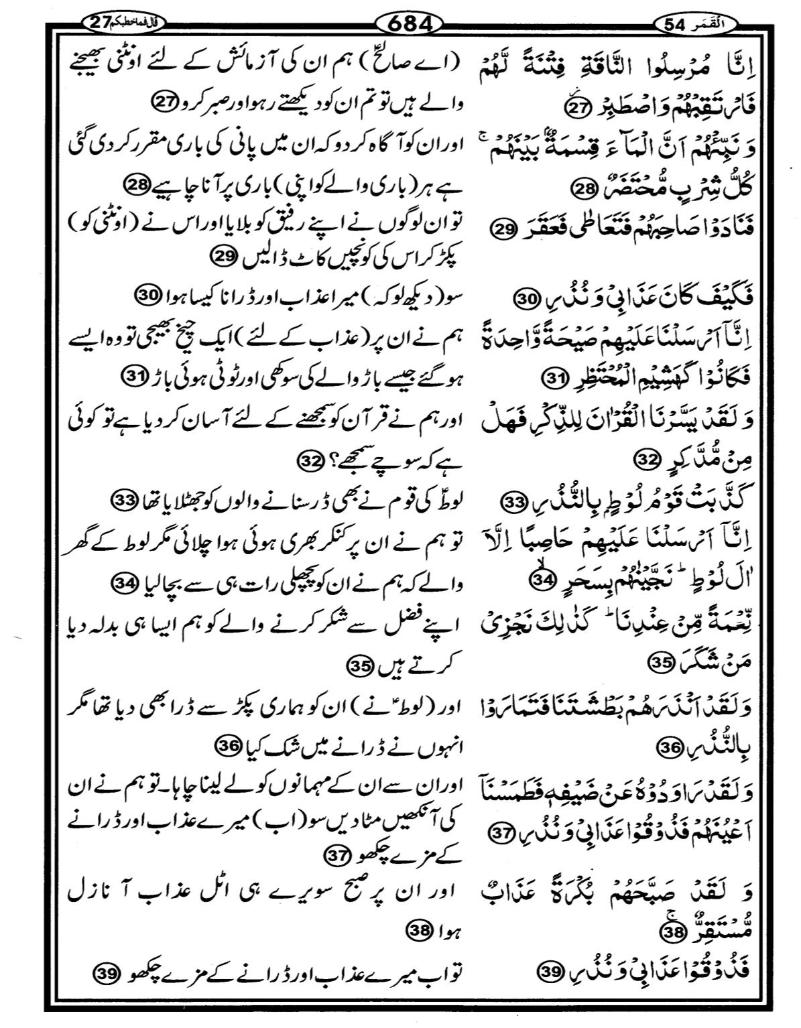 اَلْقَمَر 54
684
قال فما خطبکم 27
اِنَّا مُرْسِلُوا النَّاقَةِ فِتْنَةً لَّهُمْ
فَارْتَقِبْهُمْ وَاصْطَبِرْ 27
وَ نَبِّئْهُمْ اَنَّ الْمَآءَ قِسْمَةٌۢ بَيْنَهُمْ ۚ
كُلُّ شِرْبٍ مُّحْتَضَرٌ 28
فَنَادَوْا صَاحِبَهُمْ فَتَعَاطٰى فَعَقَرَ 29
فَكَيْفَ كَانَ عَذَابِیْ وَ نُذُرِ 30
اِنَّاۤ اَرْسَلْنَا عَلَيْهِمْ صَيْحَةً وَّاحِدَةً
فَكَانُوْا كَهَشِيْمِ الْمُحْتَظِرِ 31
وَ لَقَدْ يَسَّرْنَا الْقُرْاٰنَ لِلذِّكْرِ فَهَلْ
مِنْ مُّدَّكِرٍ 32
كَذَّبَتْ قَوْمُ لُوْطٍۭ بِالنُّذُرِ 33
اِنَّاۤ اَرْسَلْنَا عَلَيْهِمْ حَاصِبًا اِلَّاۤ
اٰلَ لُوْطٍ ؕ نَجَّيْنٰهُمْ بِسَحَرٍ ۙ 34
نِّعْمَةً مِّنْ عِنْدِنَا ؕ كَذٰلِكَ نَجْزِیْ
مَنْ شَكَرَ 35
وَلَقَدْ اَنْذَرَهُمْ بَطْشَتَنَا فَتَمَارَوْا
بِالنُّذُرِ 36
وَ لَقَدْ رَاوَدُوْهُ عَنْ ضَيْفِهٖ فَطَمَسْنَاۤ
اَعْيُنَهُمْ فَذُوْقُوْا عَذَابِیْ وَ نُذُرِ 37
وَ لَقَدْ صَبَّحَهُمْ بُكْرَةً عَذَابٌ
مُّسْتَقِرٌّ ۚ 38
فَذُوْقُوْا عَذَابِیْ وَ نُذُرِ 39
(اے صالحؑ) ہم ان کی آزمائش کے لئے اونٹنی بھیجنے
والے ہیں تو تم ان کو دیکھتے رہو اور صبر کرو 27
اور ان کو آگاہ کر دو کہ ان میں پانی کی باری مقرر کر دی گئی
ہے ہر (باری والے کو اپنی) باری پر آنا چاہیے 28
تو ان لوگوں نے اپنے رفیق کو بلایا اور اس نے (اونٹنی کو)
پکڑ کر اس کی کونچیں کاٹ ڈالیں 29
سو (دیکھ لو کہ) میرا عذاب اور ڈرانا کیسا ہوا 30
ہم نے ان پر (عذاب کے لئے) ایک چیخ بھیجی تو وہ ایسے
ہو گئے جیسے باڑ والے کی سوکھی اور ٹوٹی ہوئی باڑ 31
اور ہم نے قرآن کو سمجھنے کے لئے آسان کر دیا ہے تو کوئی
ہے کہ سوچے سمجھے؟ 32
لوطؑ کی قوم نے بھی ڈر سنانے والوں کو جھٹلایا تھا 33
تو ہم نے ان پر کنکر بھری ہوئی ہوا چلائی مگر لوط کے گھر
والے کہ ہم نے ان کو پچھلی رات ہی سے بچا لیا 34
اپنے فضل سے شکر کرنے والے کو ہم ایسا ہی بدلہ دیا
کرتے ہیں 35
اور (لوطؑ نے) ان کو ہماری پکڑ سے ڈرا بھی دیا تھا مگر
انہوں نے ڈرانے میں شک کیا 36
اور ان سے ان کے مہمانوں کو لے لینا چاہا۔ تو ہم نے ان
کی آنکھیں مٹا دیں سو (اب) میرے عذاب اور ڈرانے
کے مزے چکھو 37
اور ان پر صبح سویرے ہی اٹل عذاب آ نازل
ہوا 38
تو اب میرے عذاب اور ڈرانے کے مزے چکھو 39